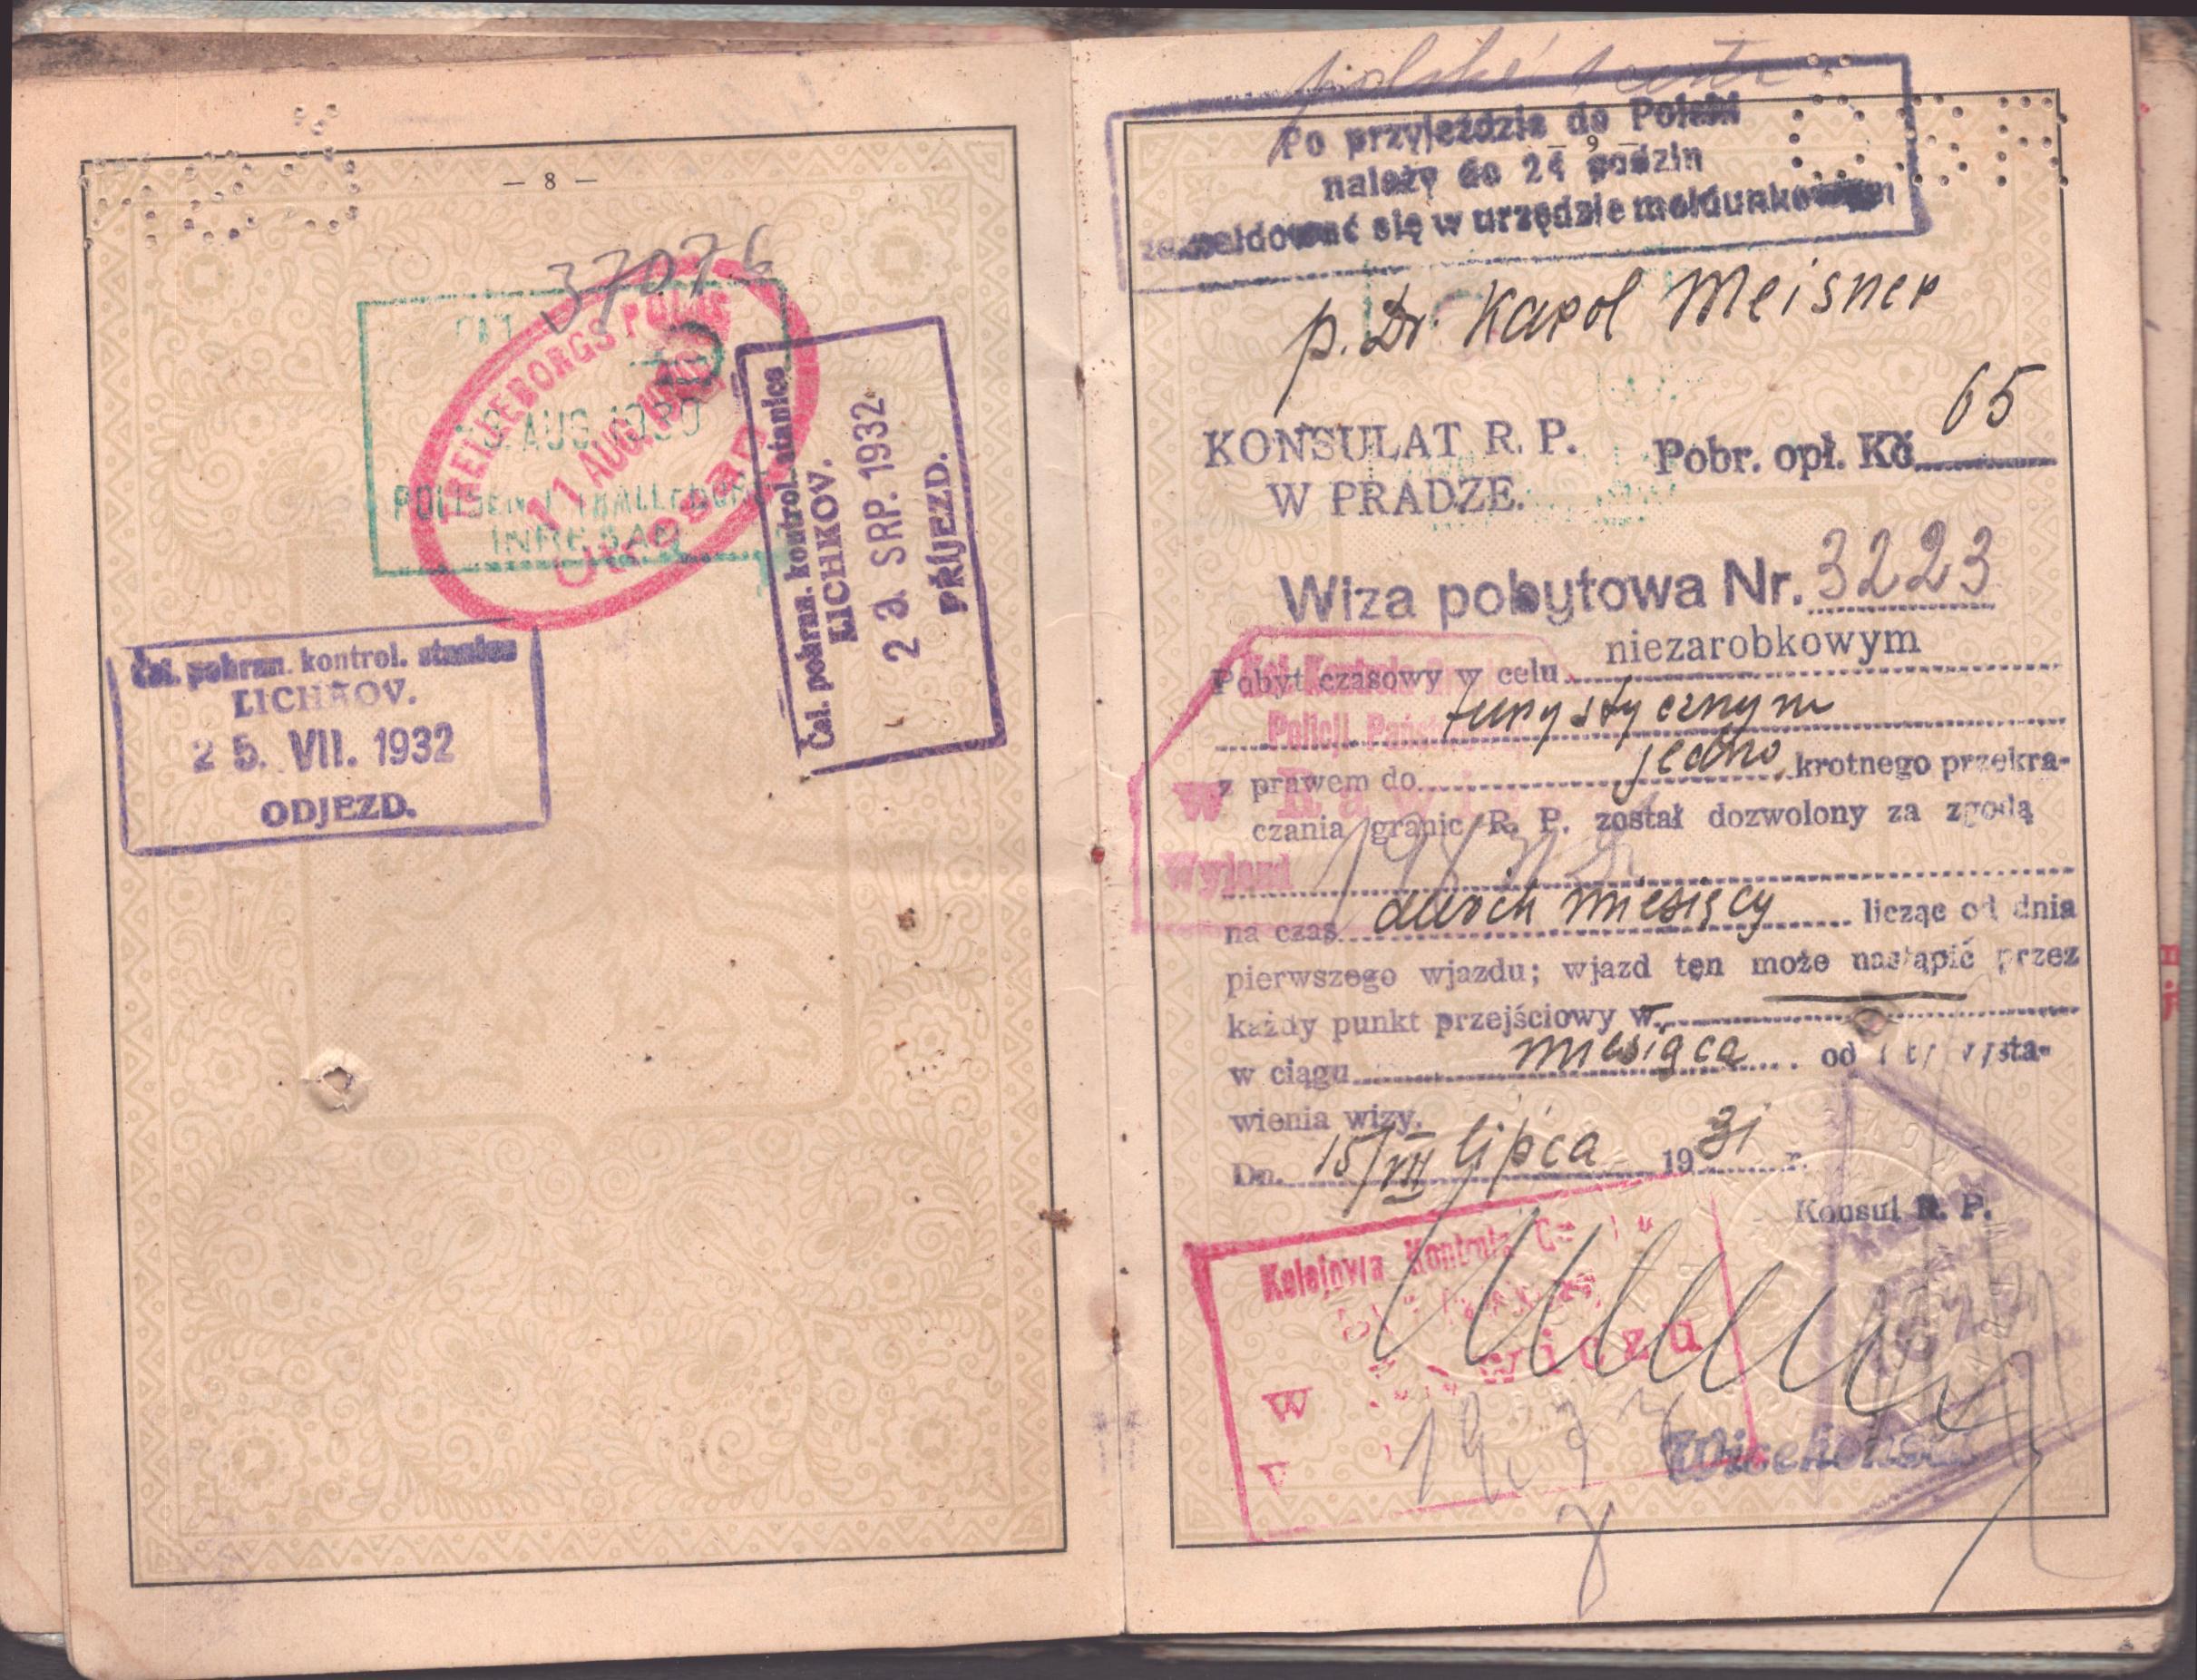 — 8 —
37076
TRELLEBORGS POLIS
11 AUG. 1930
Utresan
3. AUG. 1930
POLISEN I TRÄLLEBORG
INRESAN
Čsl. pohran. kontrol. stanice
LICHKOV.
23. SRP. 1932
PŘÍJEZD.
Čsl. pohran. kontrol. stanice
LICHKOV.
25. VII. 1932
ODJEZD.
polské
— 9 —
Po przyjeździe do Polski
należy do 24 godzin
zameldować się w urzędzie meldunkowym
p. Dr Karol Meisner
KONSULAT R. P.
W PRADZE.
Pobr. opł. Kč 65
Wiza pobytowa Nr. 3223
Pobyt czasowy w celu niezarobkowym
turystycznym
z prawem do jedno krotnego przekra-
czania granic R. P. został dozwolony za zgodą
na czas dwóch miesięcy licząc od dnia
pierwszego wjazdu; wjazd ten może nastąpić przez
każdy punkt przejściowy w
w ciągu miesiąca od wysta-
wienia wizy.
Dn. 15/VII lipca 1931 r.
Konsul R. P.
Kol. Kontrola
Policji Państ
w Rawi
Wyjazd
Kolejowa Kontrola
w
Wicekonsul